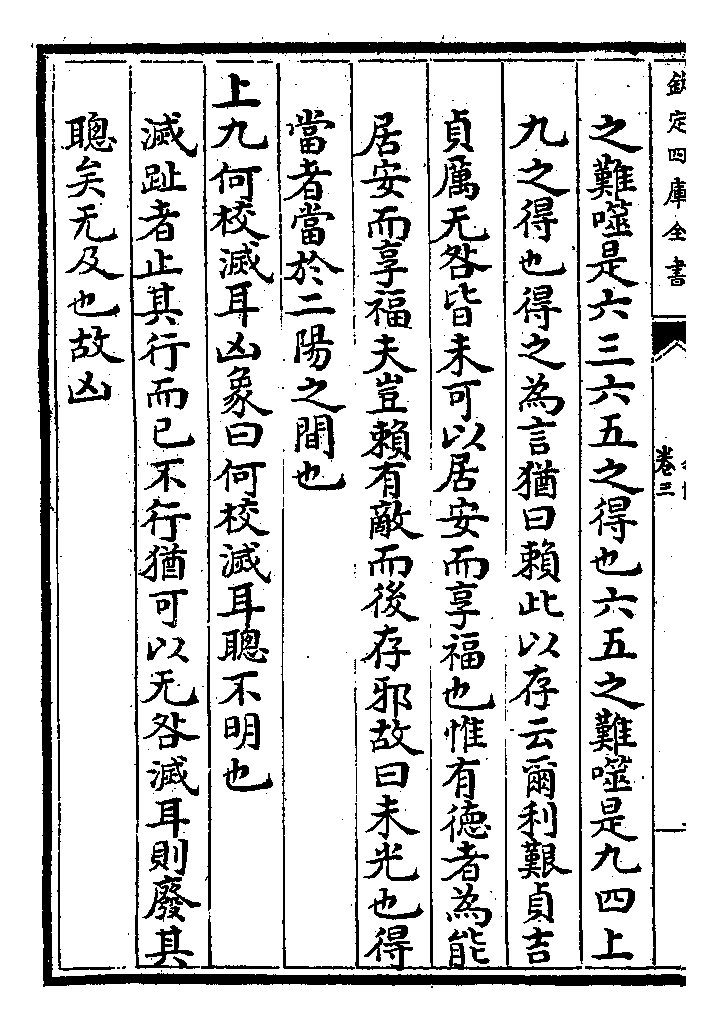 欽定四庫全書
卷三
之難噬是六三六五之得也六五之難噬是九四上
九之得也得之為言猶曰賴此以存云爾利艱貞吉
貞厲无咎皆未可以居安而享福也惟有德者為能
居安而享福夫豈賴有敵而後存邪故曰未光也得
當者當於二陽之間也
上九何校滅耳凶象曰何校滅耳聰不明也
滅趾者止其行而已不行猶可以无咎滅耳則廢其
聰矣无及也故凶